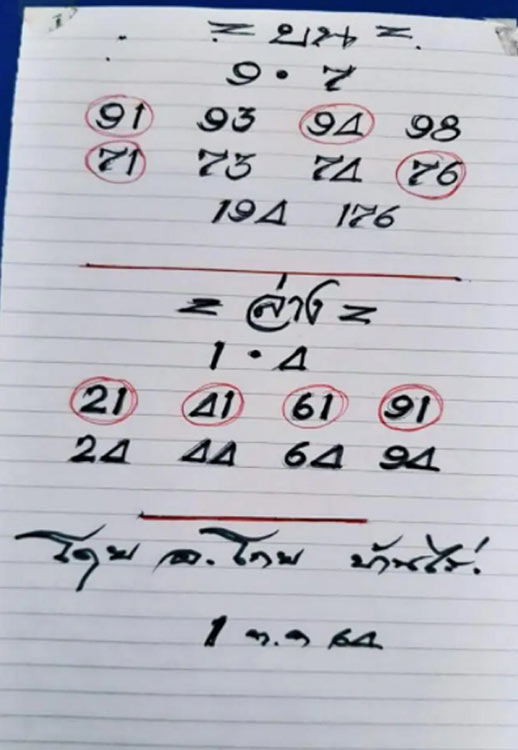 = บน =
9 · 7
91 93 94 98
71 73 74 76
194 176
= ล่าง =
1 · 4
21 41 61 91
24 44 64 94
โดย อ. บ้านไร่.
1 ต.ค 64